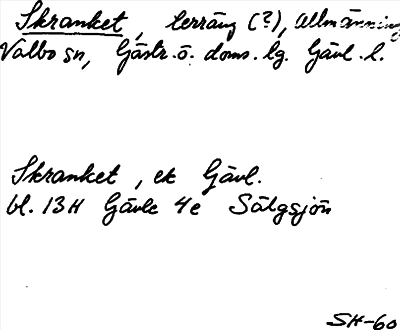 Skranket, terräng (?), Allmänning
Valbo sn, Gästr. ö. doms. lg. Gävl. l.
Skranket, ek Gävl.
bl. 13H Gävle 4e Sälgsjön
SH-60